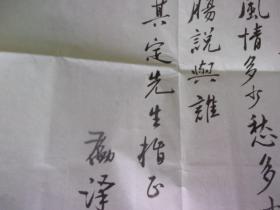 風情多少愁多少
腸說與誰
其定先生指正